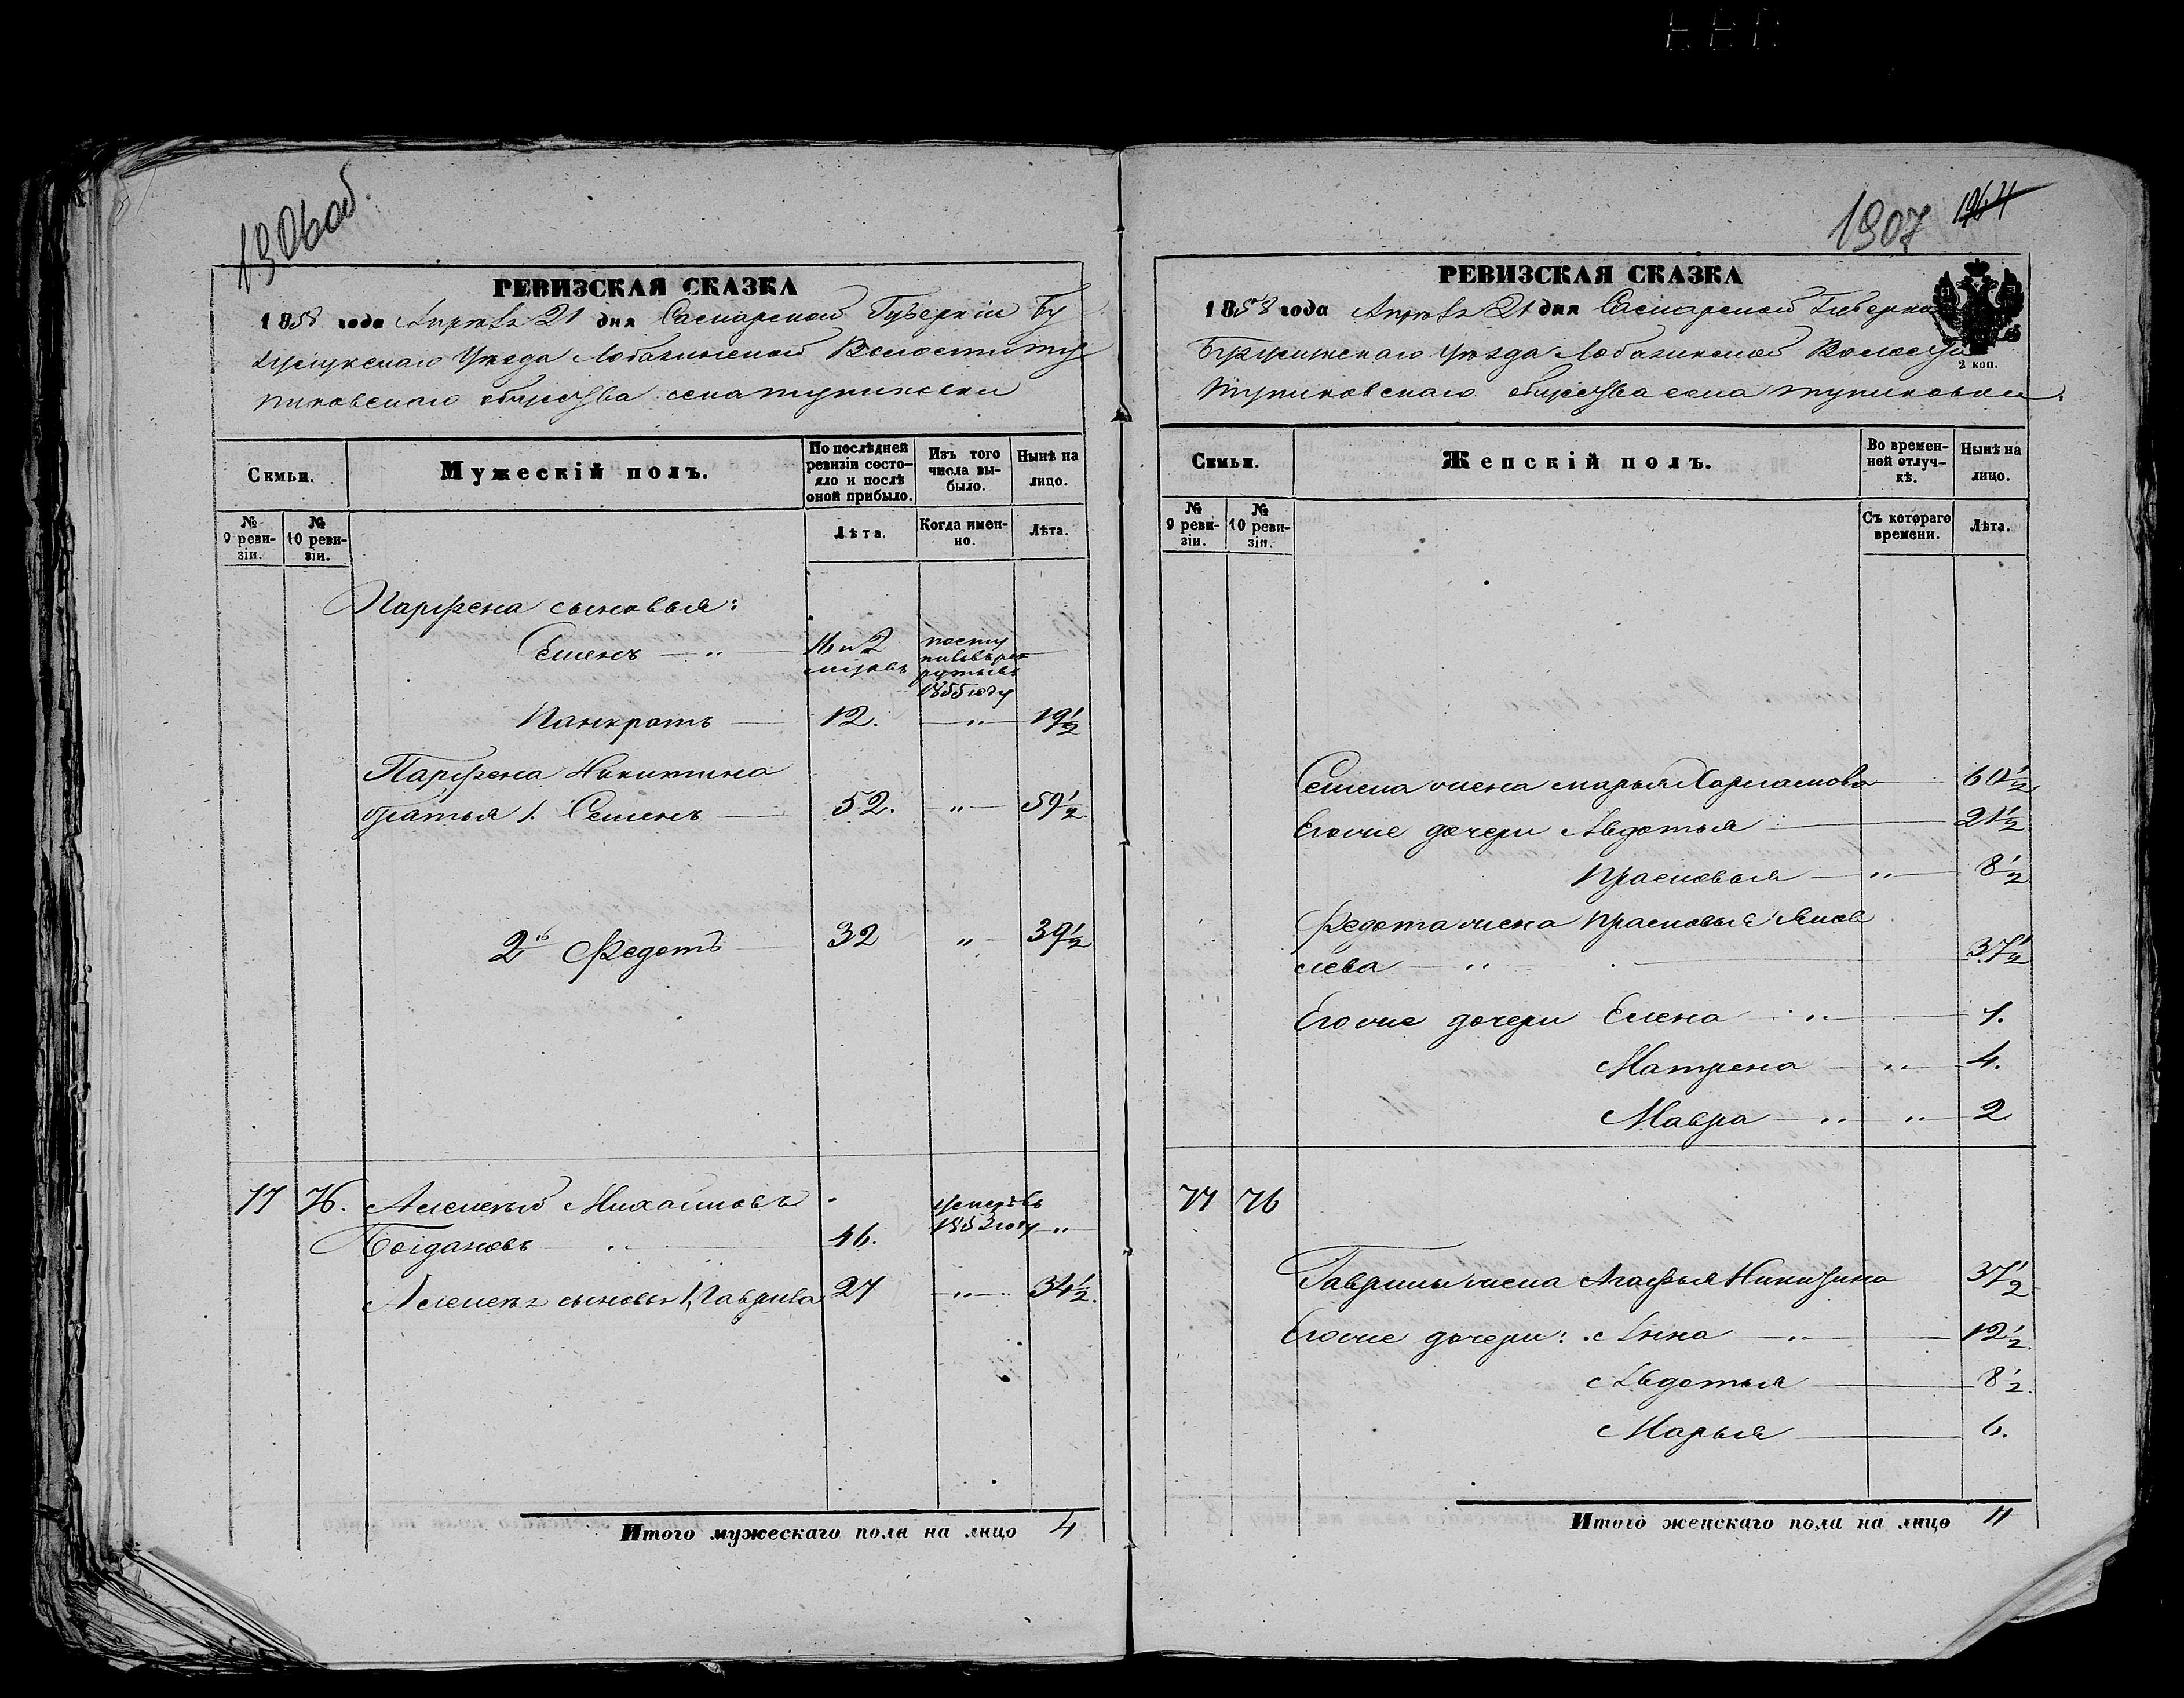 1906 об.
РЕВИЗСКАЯ СКАЗКА
1858 года Апреля 21 дня Самарской Губернiи Бу
гурусланскаго Уѣзда Лобазинской Волости Ту
пиковскаго общества села Тупиковки
Семьи.
Мужескiй полъ.
По послѣдней ревизiи состо-
яло и послѣ
оной прибыло.
Изъ того
числа вы-
было.
Нынѣ на
лицо.
№
9 реви-
зiи.
№
10 реви-
зiи.
Лѣта.
Когда имен-
но.
Лѣта.
Парфена сыновья:
Семенъ — „ 16 и 2 посту
пилъ въ рек
руты въ
1855 году
Панкратъ — 12. — „ — 19½
Парфена Никитина
братья 1. Семенъ — 52. — „ — 59½
2й Федотъ — 32 „ — 39½
77 76. Алексѣй Михайловъ умеръ въ
Богдановъ „ 46. 1853 году — „ —
Алексѣя сыновья 1, Гаврила 27 — „ — 34½.
Итого мужескаго пола на лицо 4
1907 1964
РЕВИЗСКАЯ СКАЗКА
1858 года Апреля 21 дня Самарской Губернiи
2 коп.
Бугурусланскаго Уѣзда Лобазинской Волости
Тупиковскаго общества села Тупиковки.
Семьи.
Женскiй полъ.
Во времен-
ной отлуч-
кѣ.
Нынѣ на
лицо.
№
9 реви-
зiи.
№
10 реви-
зiи.
Съ котораго
времени.
Лѣта.
Семена жена Марья Харламова 60½
Его же дочери Авдотья 21½
Прасковья — „ — 8½
Федота жена Прасковья Яков
лева — „ 37½
Его же дочери Елена „ 7.
Матрена — „ — 4.
Мавра — „ „ — 2
77 76
Гаврилы жена Агафья Никитина 37½
Его же дочери: Анна — „ — 12½
Авдотья 8½
Марья 6.
Итого женскаго пола на лицо 11